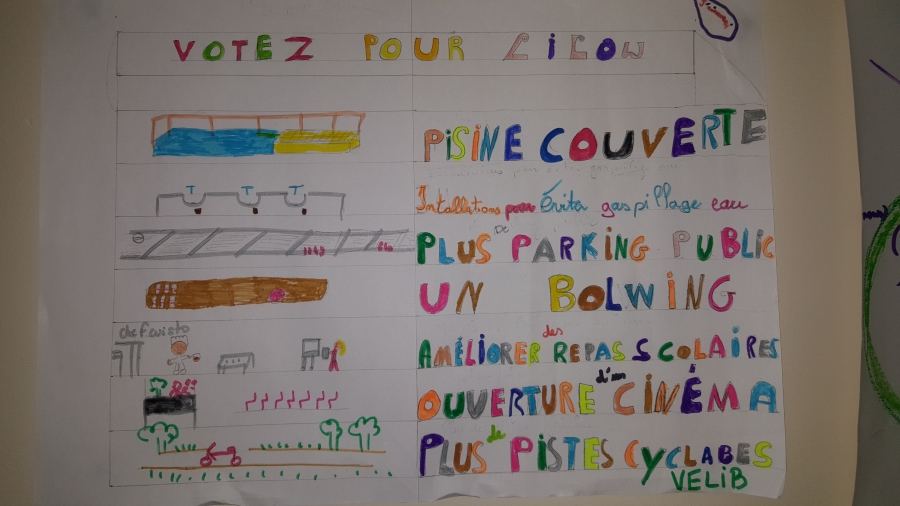 VOTEZ POUR LILOW
PISINE COUVERTE
Intallations pour Éviter gaspillage eau
PLUS DE PARKING PUBLIC
UN BOLWING
chef cuisto
AMÉLIORER des REPAS SCOLAIRES
OUVERTURE d'un CINÉMA
PLUS de PISTES CYCLABES
VELIB